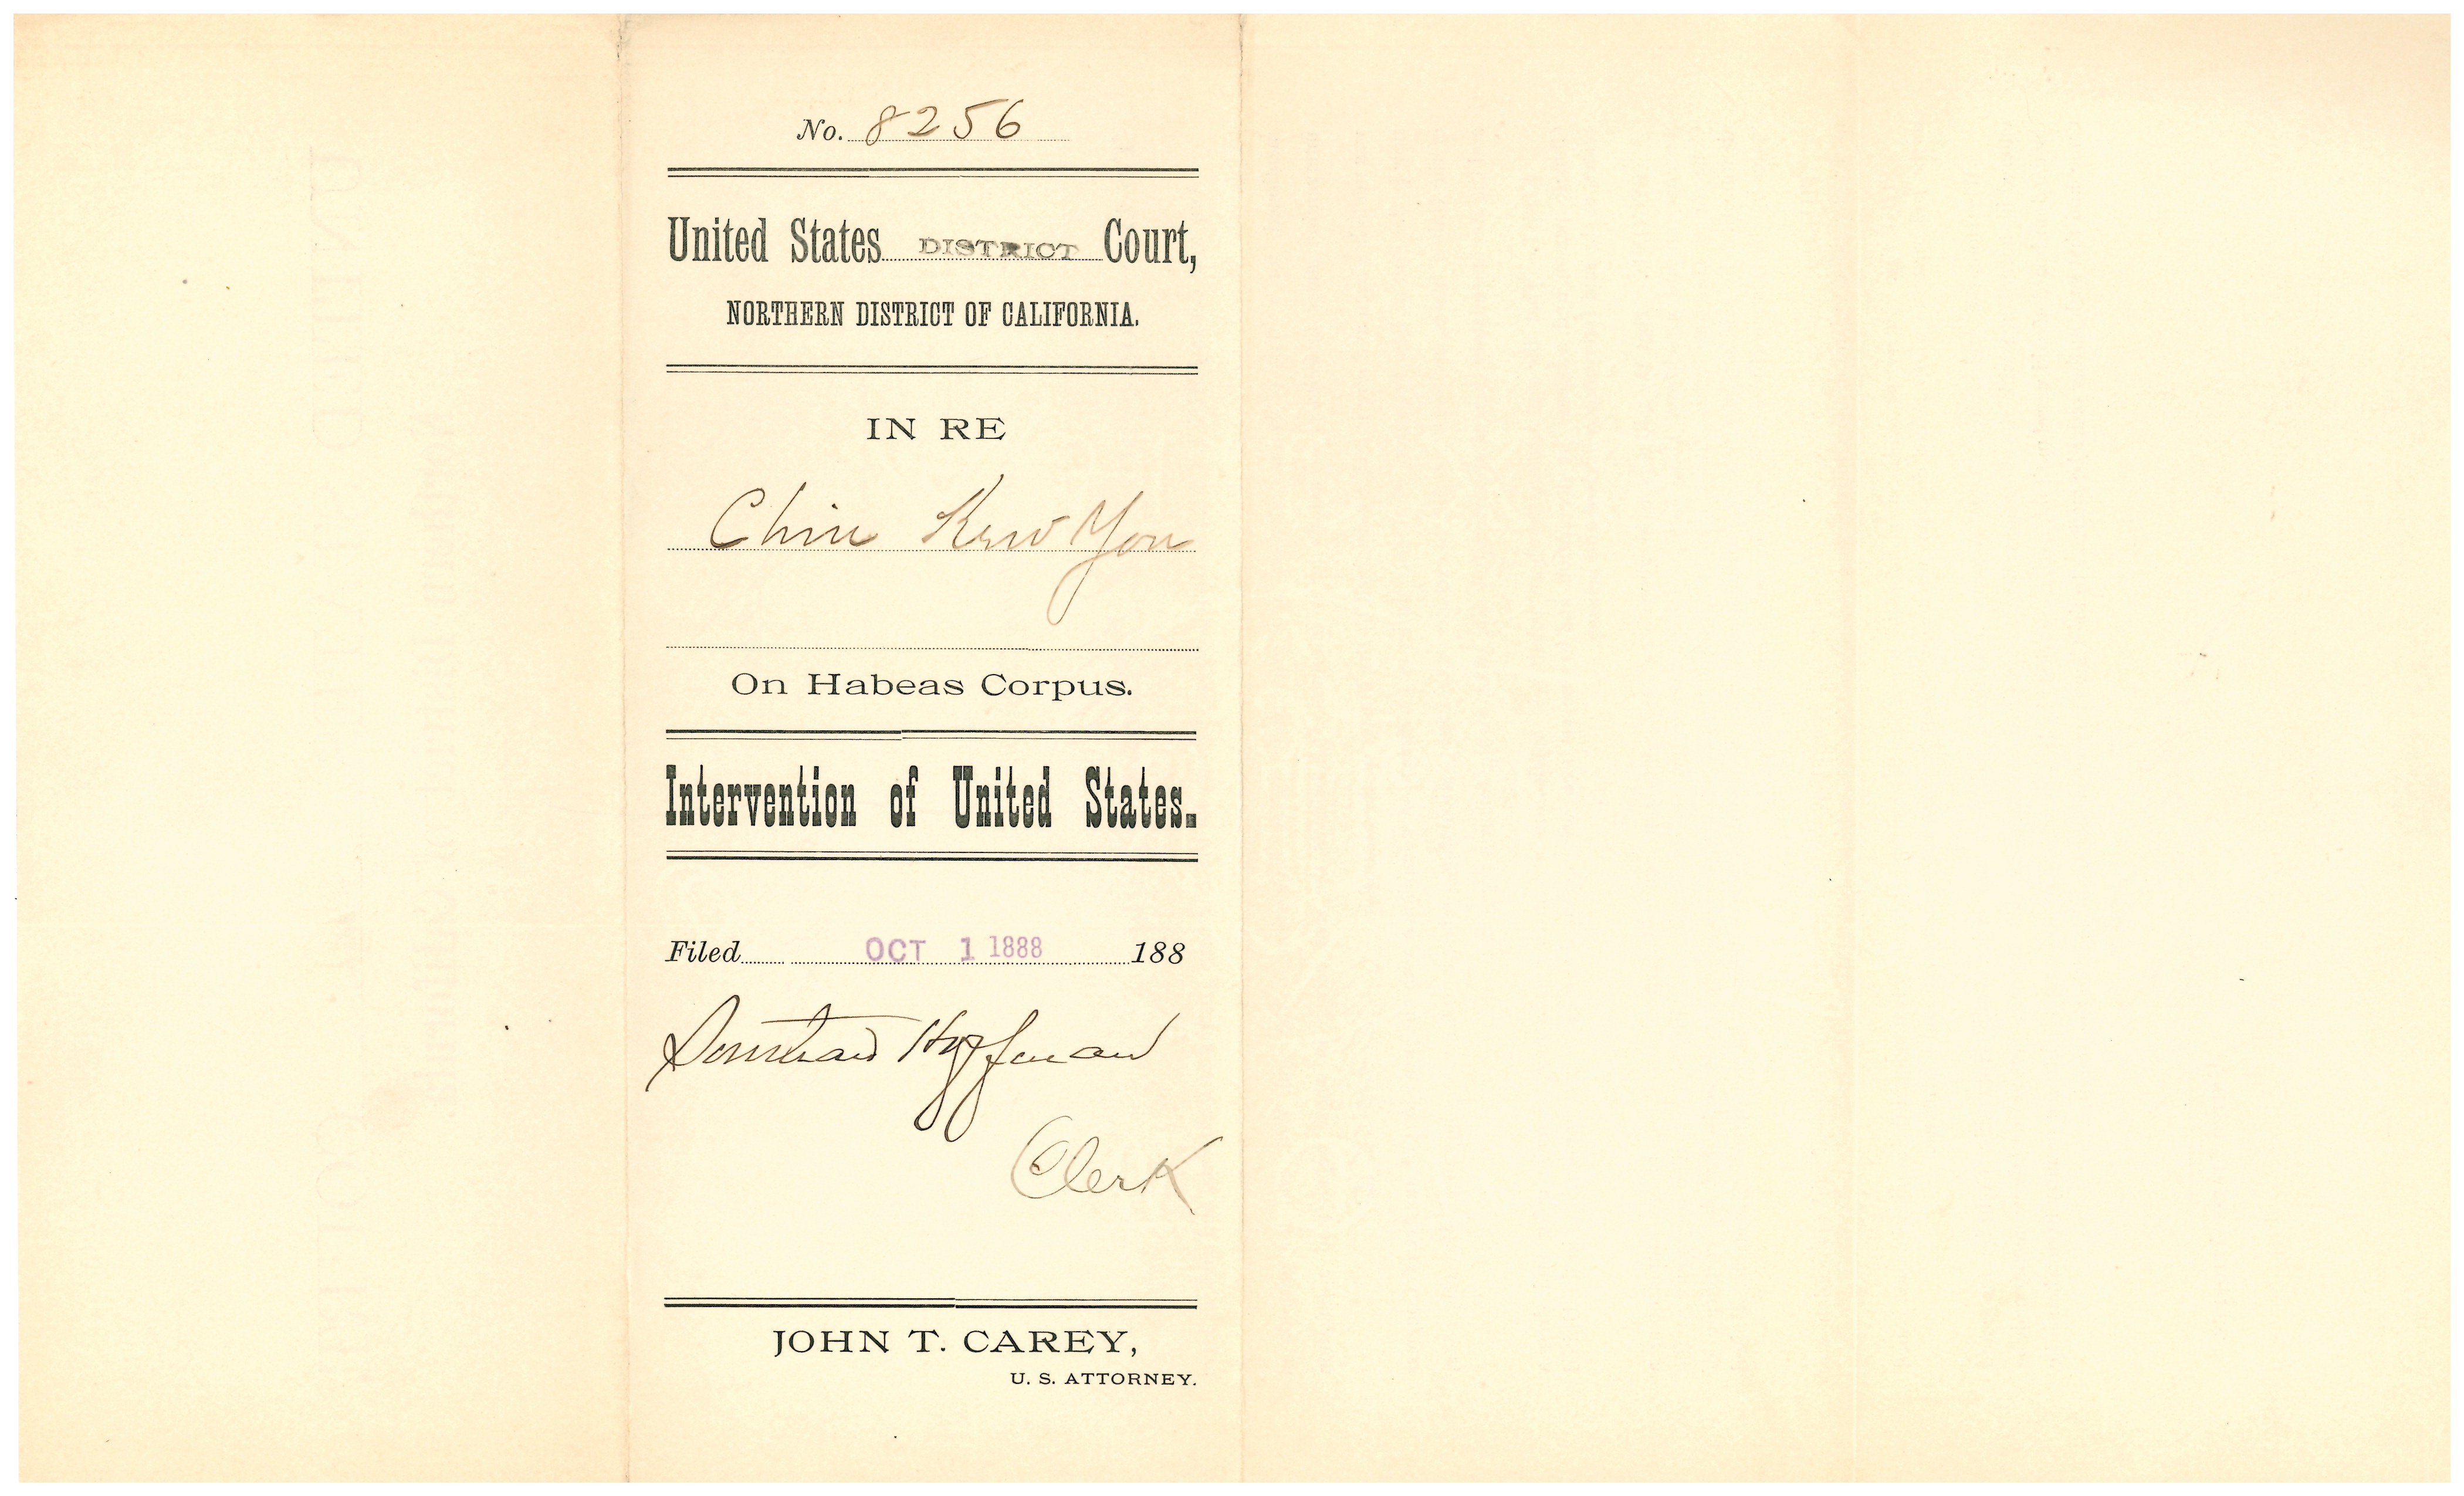 No. 8256
United States DISTRICT Court,
NORTHERN DISTRICT OF CALIFORNIA.
IN RE
Chin Kew You
On Habeas Corpus.
Intervention of United States.
Filed OCT 1 1888 188
Hoffman
Clerk
JOHN T. CAREY,
U. S. ATTORNEY.